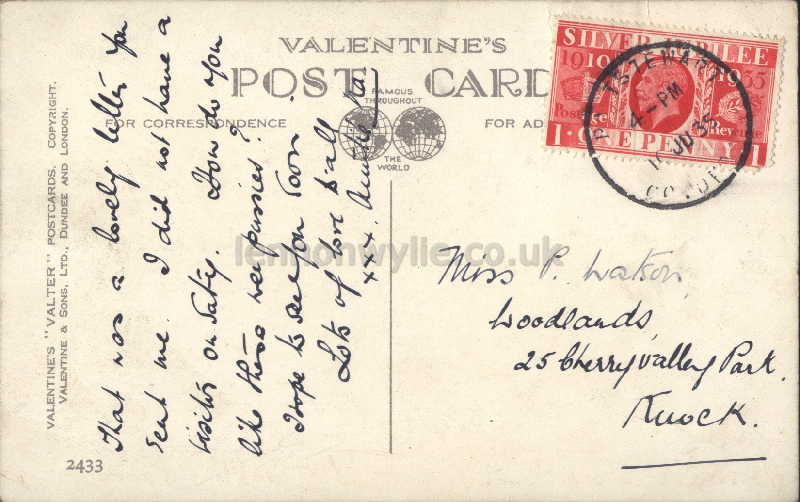 VALENTINE'S
POST CARD
FAMOUS
THROUGHOUT
THE
WORLD
FOR CORRESPONDENCE
FOR AD
VALENTINE'S "VALTER" POSTCARDS. COPYRIGHT.
VALENTINE & SONS, LTD., DUNDEE AND LONDON.
2433
That was a lovely letter you
sent me. I did not have a
visitor on Satdy. How do you
like these wee pussies?
I hope to see you soon.
Lots of love to all
xxx. Auntie
SILVER JUBILEE
1910 1935
Postage Revenue
1 ONE PENNY 1
PORTSTEWART
4-PM
JU 35
CO. DE
Miss P. Watson,
Woodlands,
25 Cherryvalley Park,
Knock.
lennonwylie.co.uk